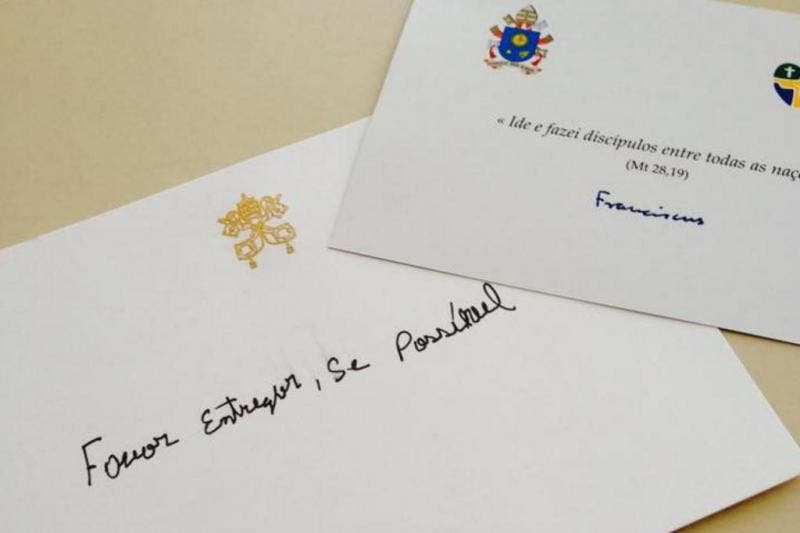 « Ide e fazei discípulos entre todas as naç
(Mt 28,19)
Franciscus
Favor Entregar, Se Possível